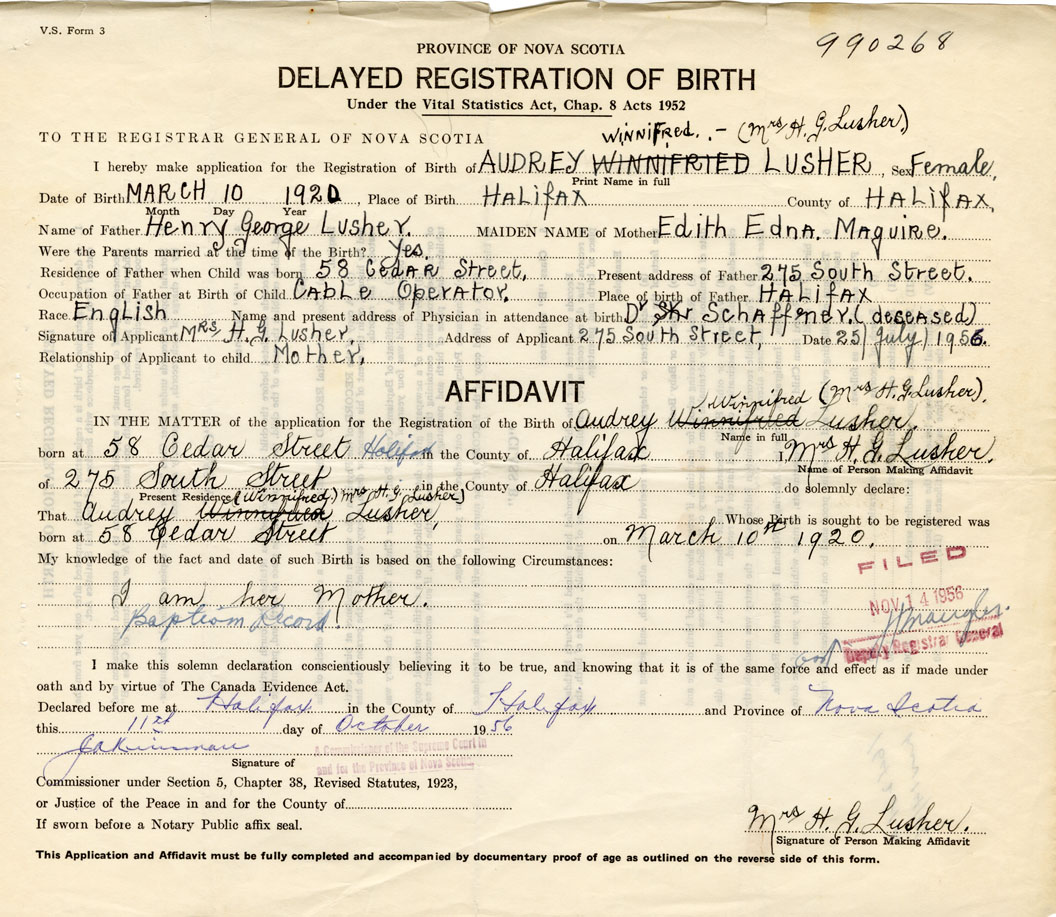 V.S. Form 3
990268
PROVINCE OF NOVA SCOTIA
DELAYED REGISTRATION OF BIRTH
Under the Vital Statistics Act, Chap. 8 Acts 1952
WINNIFRED. - (Mrs H. G. Lusher.)
TO THE REGISTRAR GENERAL OF NOVA SCOTIA
I hereby make application for the Registration of Birth of AUDREY WINNIFRIED LUSHER, Sex Female,
Print Name in full
Date of Birth MARCH 10 1920, Place of Birth HALIFAX County of HALIFAX,
Month Day Year
Name of Father Henry George Lusher. MAIDEN NAME of Mother Edith Edna. Maguire.
Were the Parents married at the time of the Birth? Yes.
Residence of Father when Child was born 58 Cedar Street, Present address of Father 275 South Street.
Occupation of Father at Birth of Child Cable Operator. Place of birth of Father HALIFAX
Race English Name and present address of Physician in attendance at birth Dr Schaffner. (deceased)
Signature of Applicant Mrs H. G. Lusher. Address of Applicant 275 South Street, Date 25/July/1956.
Relationship of Applicant to child Mother.
AFFIDAVIT
Winnifred (Mrs H. G. Lusher).
IN THE MATTER of the application for the Registration of the Birth of Audrey Winnifried Lusher.
Name in full
born at 58 Cedar Street Halifax in the County of Halifax I, Mrs H. G. Lusher.
Name of Person Making Affidavit
of 275 South Street in the County of Halifax do solemnly declare:
Present Residence (Winnifred.) Mrs H. G. Lusher)
That Audrey Winnifried Lusher, Whose Birth is sought to be registered was
born at 58 Cedar Street on March 10th 1920.
My knowledge of the fact and date of such Birth is based on the following Circumstances:
FILED
I am her Mother.
NOV 14 1956
Baptism Record
Deputy Registrar General
I make this solemn declaration conscientiously believing it to be true, and knowing that it is of the same force and effect as if made under
oath and by virtue of The Canada Evidence Act.
Declared before me at Halifax in the County of Halifax and Province of Nova Scotia
this 11th day of October 1956
A Commissioner of the Supreme Court in
and for the Province of Nova Scotia
Signature of
Commissioner under Section 5, Chapter 38, Revised Statutes, 1923,
or Justice of the Peace in and for the County of
If sworn before a Notary Public affix seal.
Mrs H. G. Lusher.
Signature of Person Making Affidavit
This Application and Affidavit must be fully completed and accompanied by documentary proof of age as outlined on the reverse side of this form.